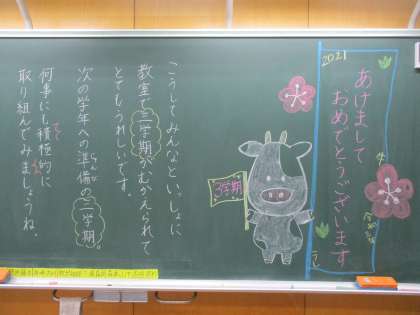 2021
あけまして
おめでとうございます
3学期
こうしてみんなといっしょに
教室で三学期がむかえられて
とてもうれしいです。
次の学年への準備の三学期。
じゅんび
何事にも積極的に
取り組んでみましょうね。